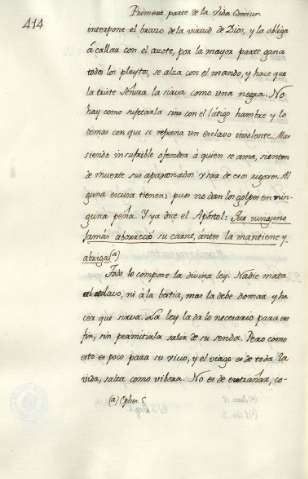 414
Primera parte de la Vida Comun
interpone el brazo de la virtud de Dios, y la obliga
á callar con el azote, por la mayor parte gana
todos los pleytos, se alza con el mando, y hace que
la triste Señora la sirva como una negra. No
hay como sujetarla sino con el látigo hambre y lo
demas con que se reprena un esclavo insolente. Mas
siendo insufrible ofender á quien se ama, sienten
de muerte sus apasionados oir de esos rigores. Al
guna escusa tienen; pues no dan los golpes en nin-
guna peña. Y ya dice el Apóstol: Que ninguno
jamás aborreció su carne, antes la mantiene y
abriga (a)
Todo lo compone la divina ley. Nadie mata
el esclavo, ni á la bestia, mas la debe domar y ha
cer que sirva. La ley la da lo necesario para ese
fin, sin permitirla salir de su senda. Pero como
esto es poco para su vicio, y el ciego es de toda la
vida, salta como vibora. No es de extrañar, co-
(a) Ephes. 5.